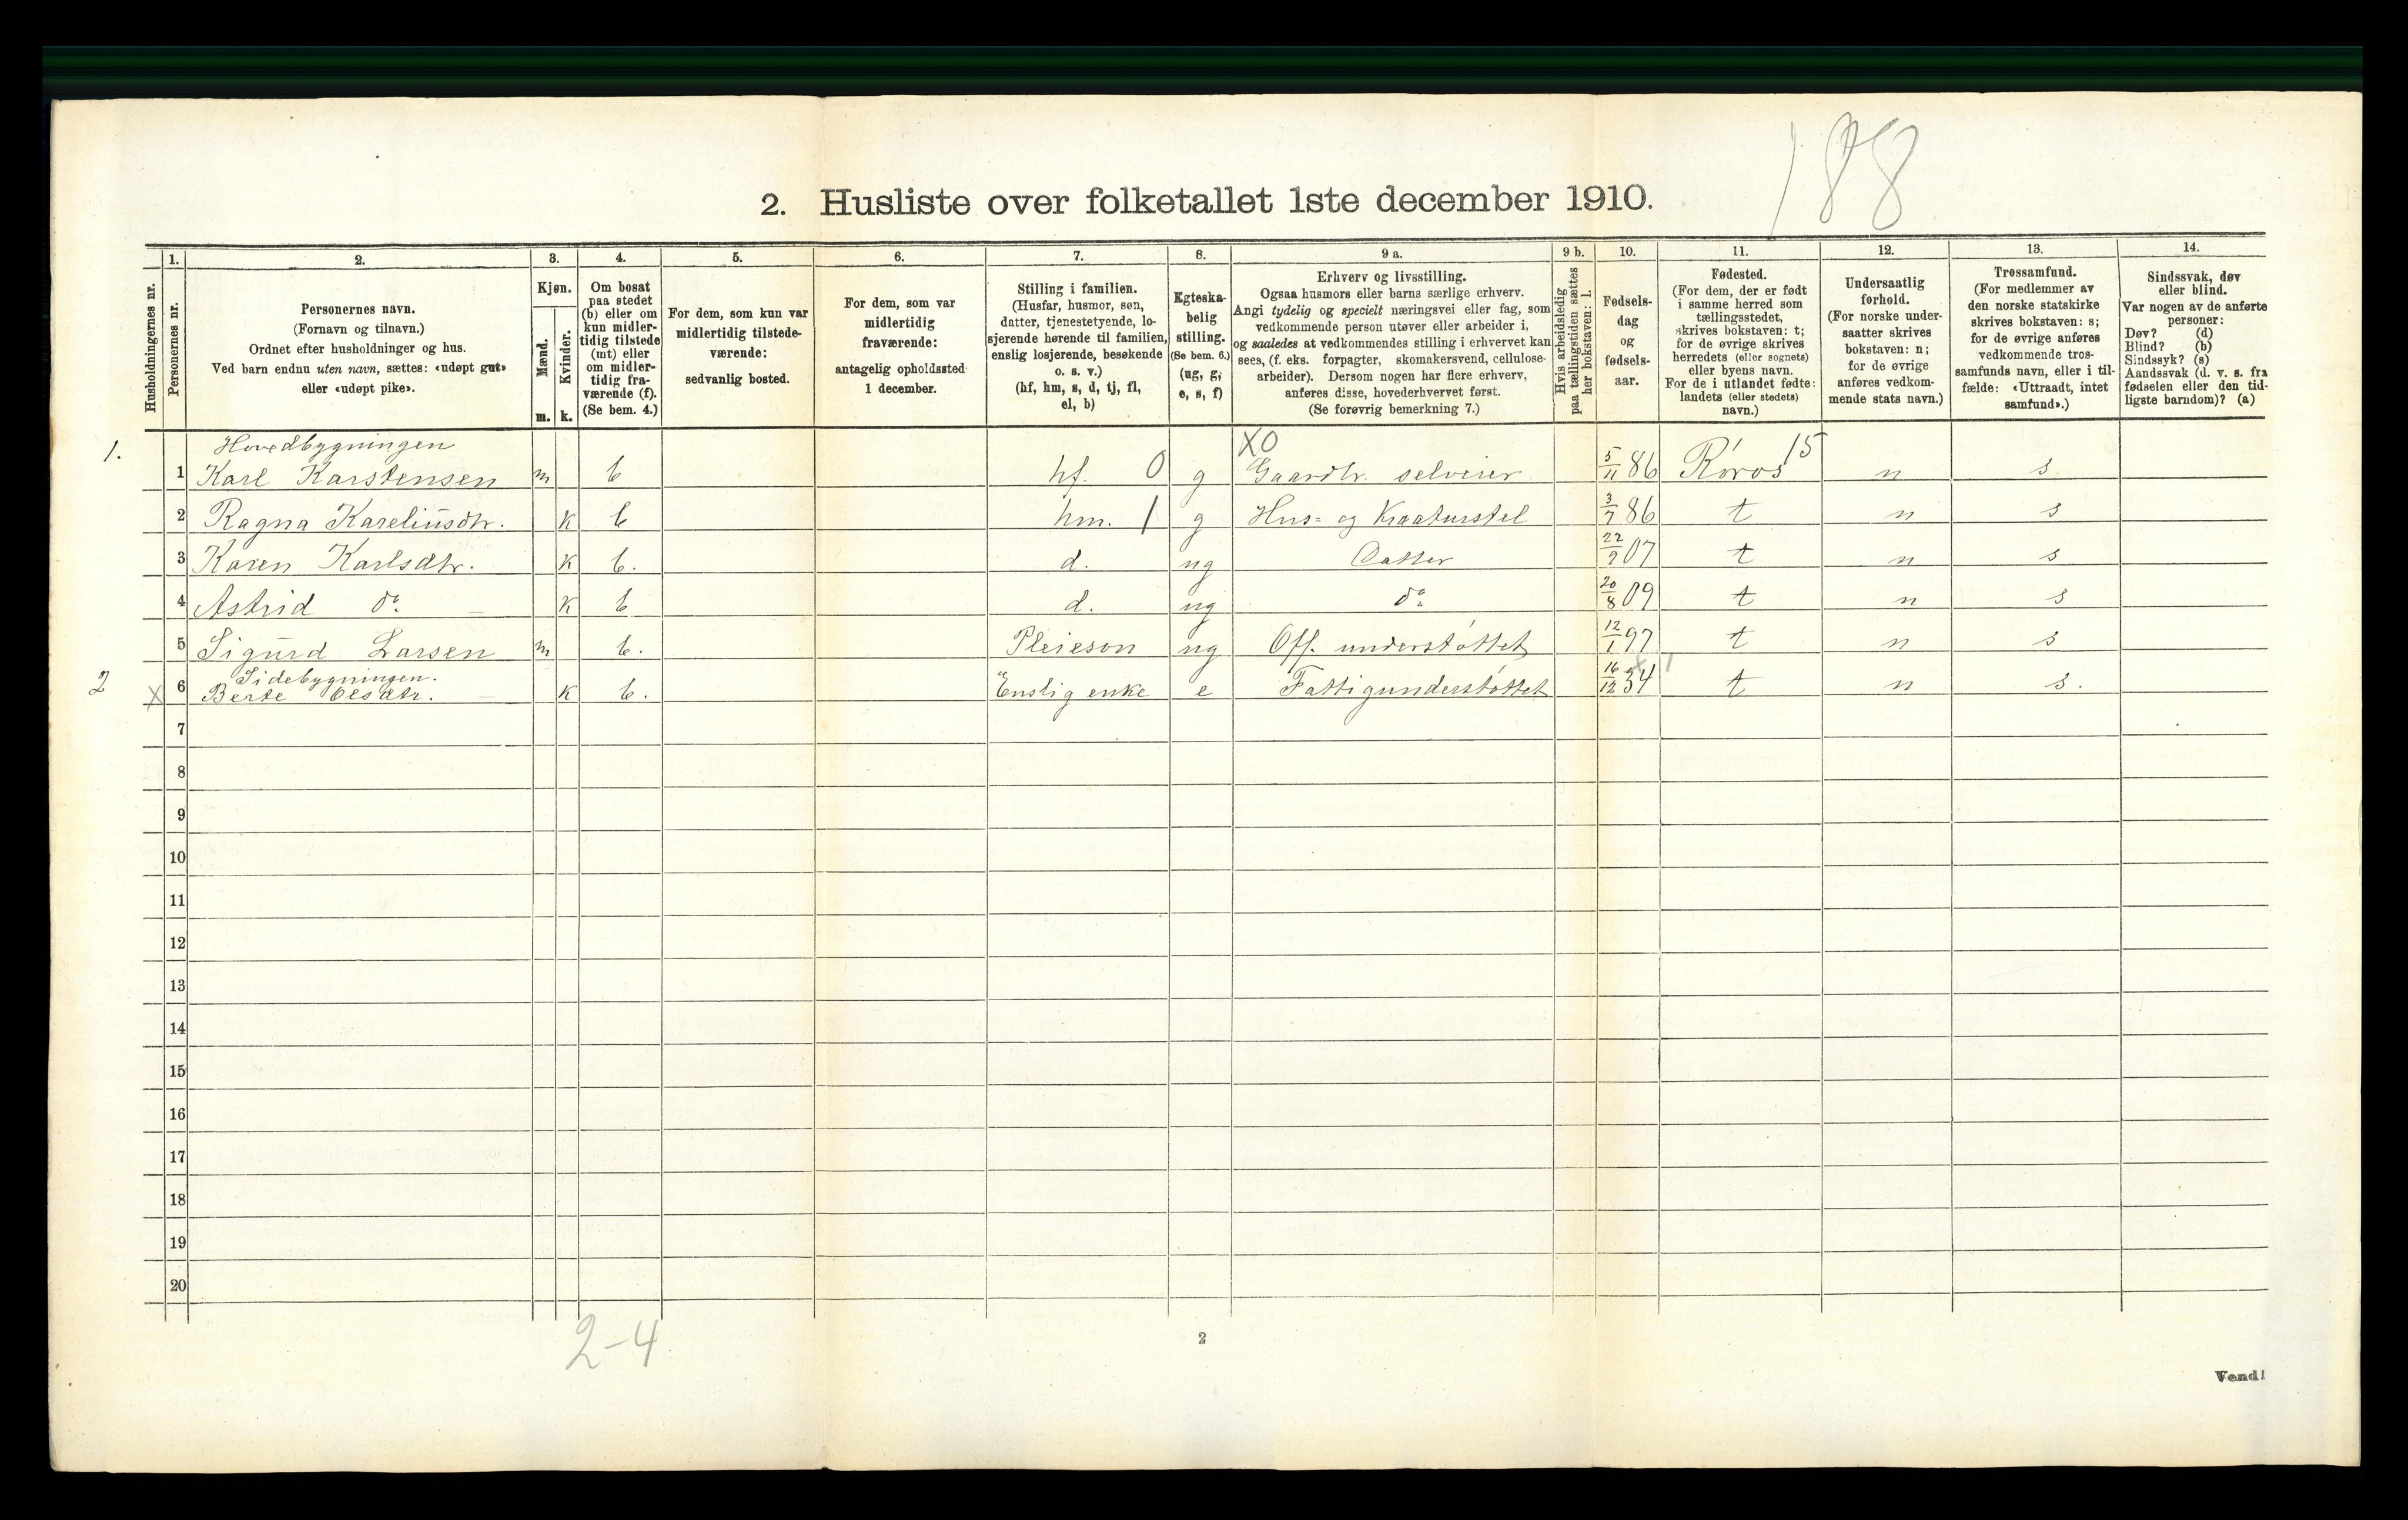 188
2. Husliste over folketallet 1ste december 1910.
Husholdningernes nr.
1.
Personernes nr.
2.
Personernes navn.
(Fornavn og tilnavn.)
Ordnet efter husholdninger og hus.
Ved barn endnu uten navn, sættes: «udøpt gut»
eller «udøpt pike».
3.
Kjøn.
Mænd.
m.
Kvinder.
k.
4.
Om bosat
paa stedet
(b) eller om
kun midler-
tidig tilstede
(mt) eller
om midler-
tidig fra-
værende (f).
(Se bem. 4.)
5.
For dem, som kun var
midlertidig tilstede-
værende:
sedvanlig bosted.
6.
For dem, som var
midlertidig
fraværende:
antagelig opholdssted
1 december.
7.
Stilling i familien.
(Husfar, husmor, søn,
datter, tjenestetyende, lo-
sjerende hørende til familien,
enslig losjerende, besøkende
o. s. v.)
(hf, hm, s, d, tj, fl,
el, b)
8.
Egteska-
belig
stilling.
(Se bem. 6.)
(ug, g,
e, s, f)
9 a.
Erhverv og livsstilling.
Ogsaa husmors eller barns særlige erhverv.
Angi tydelig og specielt næringsvei eller fag, som
vedkommende person utøver eller arbeider i,
og saaledes at vedkommendes stilling i erhvervet kan
sees, (f. eks. forpagter, skomakersvend, cellulose-
arbeider). Dersom nogen har flere erhverv,
anføres disse, hovederhvervet først.
(Se forøvrig bemerkning 7.)
9 b.
Hvis arbeidsledig
paa tællingstiden sættes
her bokstaven: l.
10.
Fødsels-
dag
og
fødsels-
aar.
11.
Fødested.
(For dem, der er født
i samme herred som
tællingsstedet,
skrives bokstaven: t;
for de øvrige skrives
herredets (eller sognets)
eller byens navn.
For de i utlandet fødte:
landets (eller stedets)
navn.)
12.
Undersaatlig
forhold.
(For norske under-
saatter skrives
bokstaven: n;
for de øvrige
anføres vedkom-
mende stats navn.)
13.
Trossamfund.
(For medlemmer av
den norske statskirke
skrives bokstaven: s;
for de øvrige anføres
vedkommende tros-
samfunds navn, eller i til-
fælde: «Uttraadt, intet
samfund».)
14.
Sindssvak, døv
eller blind.
Var nogen av de anførte
personer:
Døv? (d)
Blind? (b)
Sindssyk? (s)
Aandssvak (d. v. s. fra
fødselen eller den tid-
ligste barndom)? (a)
Hovedbygningen XO
1. 1 Karl Karstensen m b hf. 0 g Gaardbr. selveier 5/11 86 Røros 15 n s
2 Ragna Kareliusdtr. k b hm. 1 g Hus- og Kreaturstel 3/7 86 t n s
3 Karen Karlsdtr. k b. d. ug Datter 22/9 07 t n s
4 Astrid do. k b d. ug do 20/8 09 t n s
5 Sigurd Larsen m b. Pleieson ug Off. understøttet 12/1 97 t n s
Sidebygningen.
2 x 6 Berte Olsdtr. k b. Enslig enke e Fattigunderstøttet 16/12 34 t n s.
7
8
9
10
11
12
13
14
15
16
17
18
19
20
2-4
2
Vend!